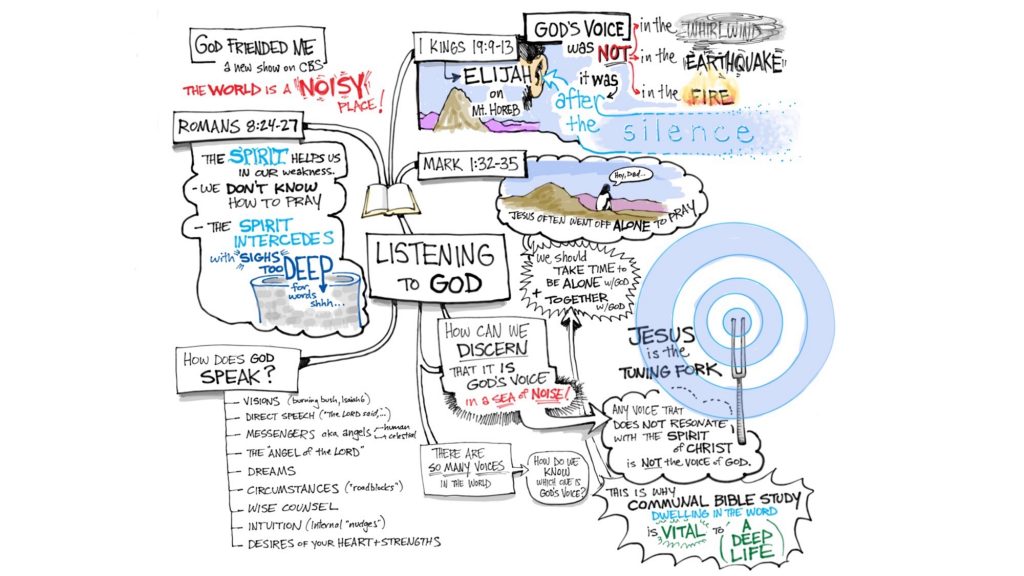 GOD FRIENDED ME
a new show on CBS
THE WORLD IS A NOISY
PLACE!
ROMANS 8:24-27
THE SPIRIT HELPS US
IN OUR WEAKNESS.
- WE DON'T KNOW
HOW TO PRAY
- THE SPIRIT
INTERCEDES
with SIGHS
TOO DEEP
for
words
shhh...
1 KINGS 19:9-13
ELIJAH
on
Mt. HOREB
GOD'S VOICE
was NOT
in the WHIRLWIND
in the EARTHQUAKE
in the FIRE
it was
after
the
silence
MARK 1:32-35
Hey, Dad...
JESUS OFTEN WENT OFF ALONE TO PRAY
LISTENING
TO GOD
we should
TAKE TIME to
BE ALONE w/GOD
+ TOGETHER
w/GOD
HOW CAN WE
DISCERN
THAT IT IS
GOD'S VOICE
in a SEA of NOISE!
JESUS
is the
TUNING FORK
ANY VOICE THAT
DOES NOT RESONATE
WITH THE SPIRIT
of CHRIST
is NOT the VOICE OF GOD.
HOW DOES GOD
SPEAK?
VISIONS (burning bush, Isaiah 6)
DIRECT SPEECH ("The LORD said,"...)
MESSENGERS aka angels human
celestial
THE "ANGEL of the LORD"
DREAMS
CIRCUMSTANCES ("roadblocks")
WISE COUNSEL
INTUITION (internal "nudges")
DESIRES OF YOUR HEART + STRENGTHS
THERE ARE
SO MANY VOICES
IN THE WORLD
HOW DO WE
KNOW
WHICH ONE IS
GOD'S VOICE?
THIS IS WHY
COMMUNAL BIBLE STUDY
DWELLING IN THE WORD
is VITAL TO (A
DEEP
LIFE)